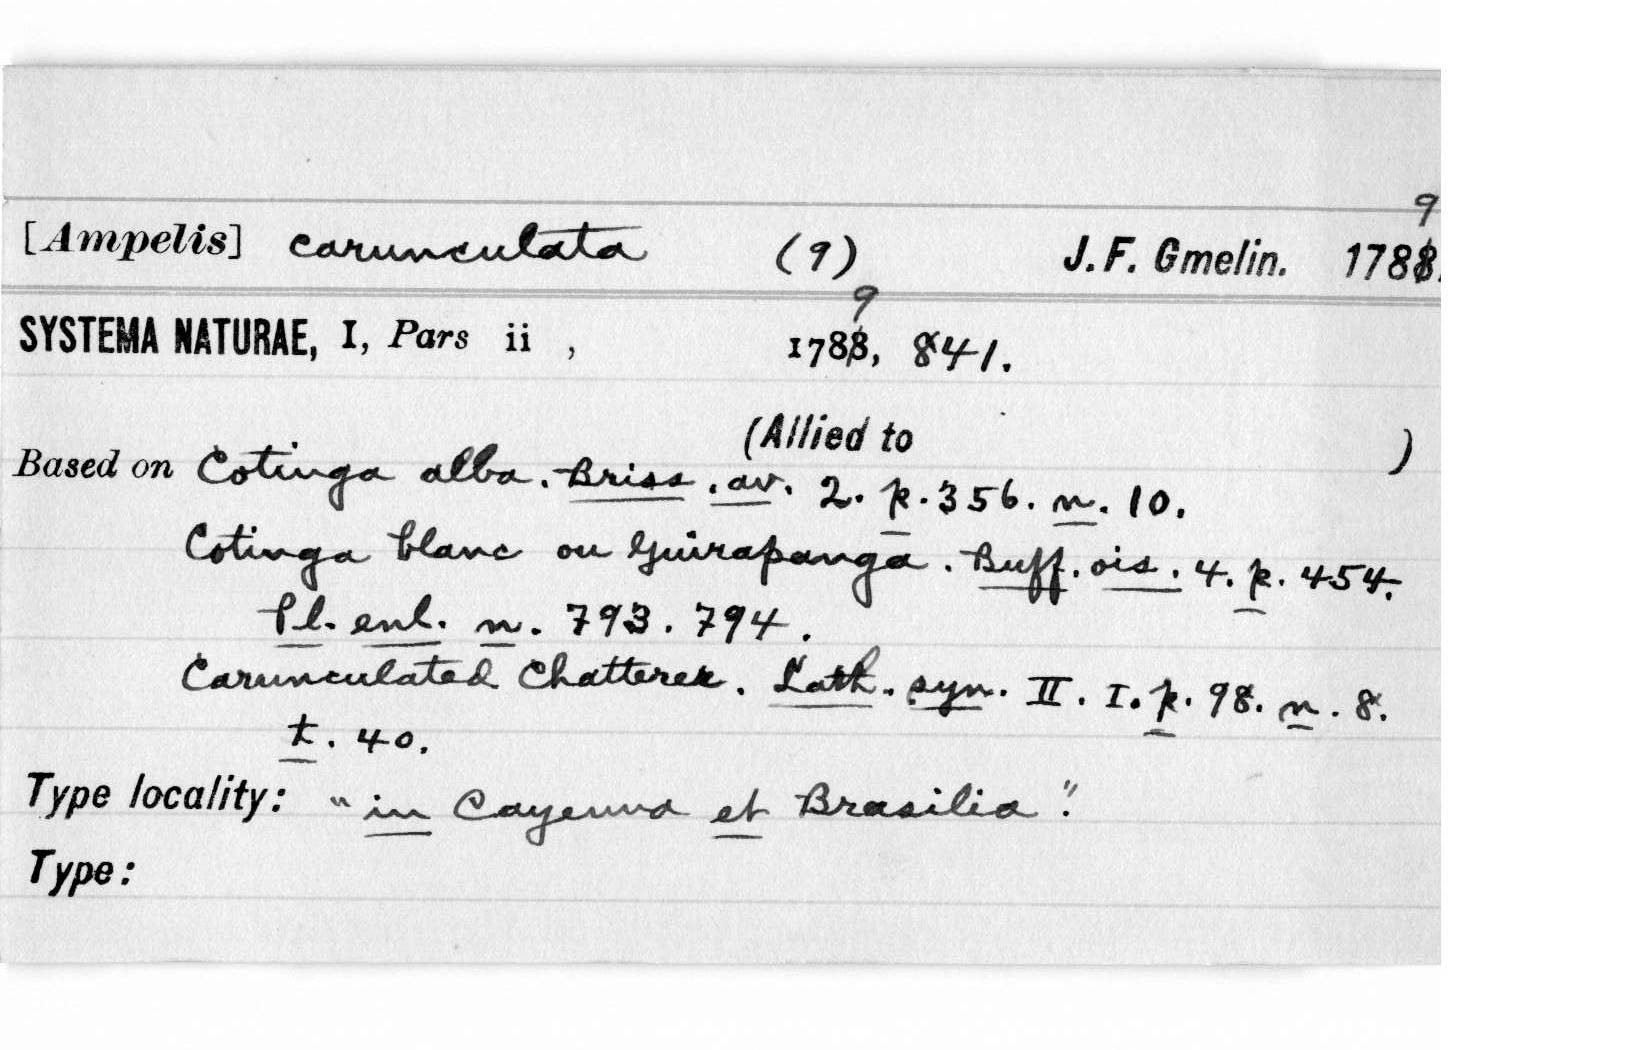 [Ampelis] carunculata (9) J. F. Gmelin. 1789.
SYSTEMA NATURAE, I, Pars ii , 1789, 841.
(Allied to )
Based on Cotinga alba. Briss. av. 2. p. 356. n. 10.
Cotinga blanc ou Guirapanga. Buff. ois. 4. p. 454.
Pl. enl. n. 793. 794.
Carunculated Chatterer. Lath. syn. II. I. p. 98. n. 8.
t. 40.
Type locality: "in Cayenna et Brasilia".
Type: